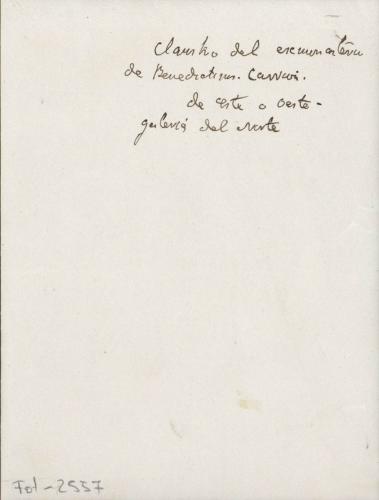 Claustro del exmonasterio
de Benedictinos. Carrión.
de este a oeste -
galería del norte
Fot-2557